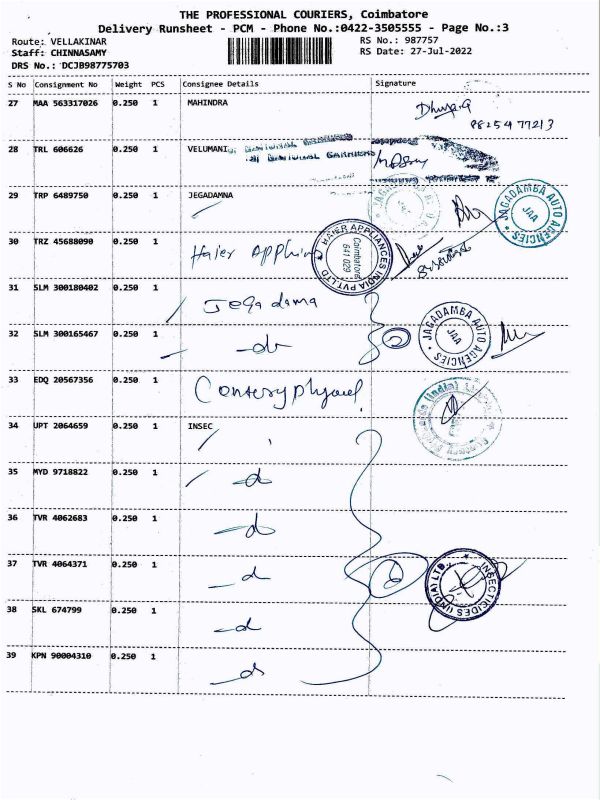 THE PROFESSIONAL COURIERS, Coimbatore
Delivery Runsheet - PCM - Phone No.:0422-3505555 - Page No.:3
Route: VELLAKINAR RS No.: 987757
Staff: CHINNASAMY RS Date: 27-Jul-2022
DRS No.: DCJB98775703
S No Consignment No Weight PCS Consignee Details Signature
27 MAA 563317026 0.250 1 MAHINDRA
9825477213
28 TRL 606626 0.250 1 VELUMANI
29 TRP 6489750 0.250 1 JEGADAMNA
JAGADAMBA AUTO AGENCIES
JAA
30 TRZ 45688090 0.250 1 Haier
HAIER APPLIANCES INDIA PVT LTD
Coimbatore
641 029
31 SLM 300180402 0.250 1 Jegadama
32 SLM 300165467 0.250 1 -do
JAGADAMBA AUTO AGENCIES
JAA
33 EDQ 20567356 0.250 1
34 UPT 2064659 0.250 1 INSEC
35 MYD 9718822 0.250 1 -d
36 TVR 4062683 0.250 1 -d
37 TVR 4064371 0.250 1 -d
INSECTICIDES (INDIA) LTD.
38 SKL 674799 0.250 1 -d
39 KPN 90004310 0.250 1 -d